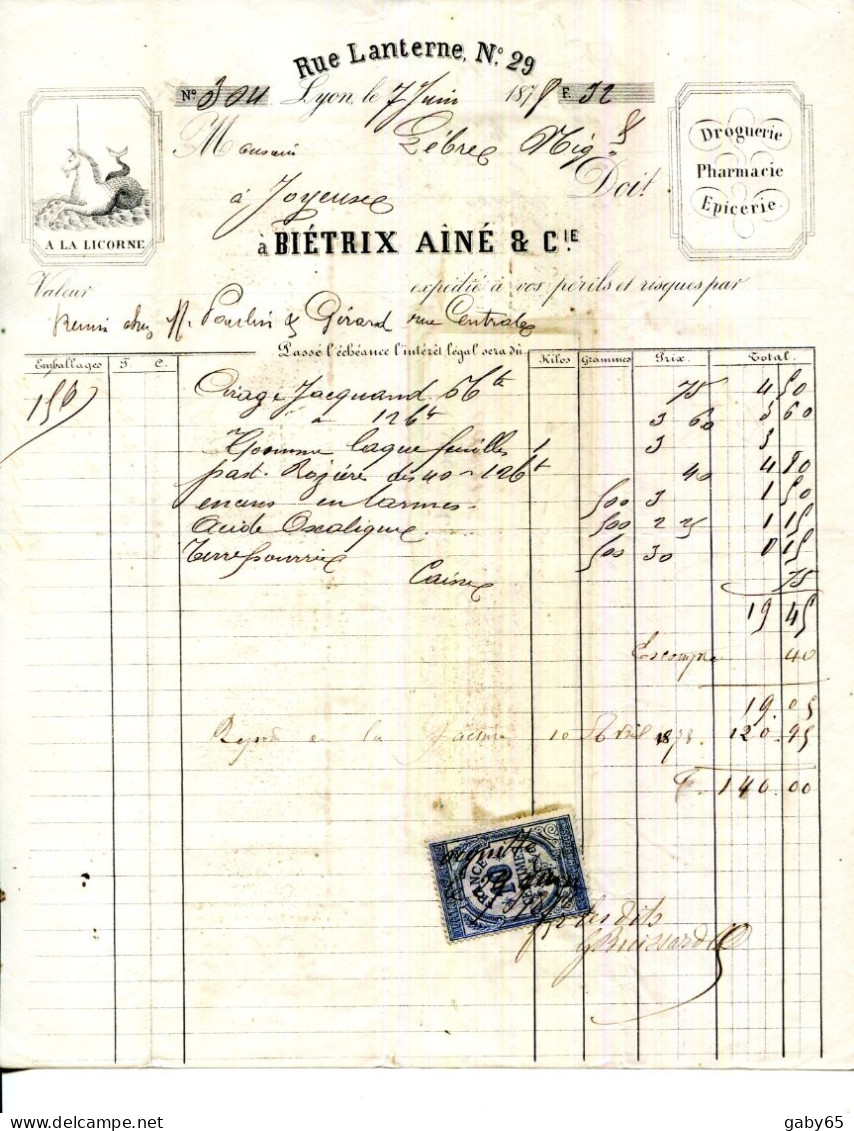 Rue Lanterne, N.º 29
Nº 304 Lyon, le 7 Juin 1878 F. 32
Monsieur Lèbre Nég
Doit
à Joyeuse
A LA LICORNE
Droguerie
Pharmacie
Epicerie.
à BIÉTRIX AÎNÉ & C.IE
Valeur expédié à vos périls et risques par
Remis chez M. Paulin & Girard rue Centrale
Passé l'échéance l'intérêt légal sera dû.
Emballages F. C. Kilos Grammes Prix. Total.
156 Cirage Jacquand 6 bte 75 4 50
à 12 6 bt 3 60 3 60
Gomme laque feuilles 1 3 3
past. Rozière des 40 12 6 bt 40 4 80
encens en larmes 500 3 1 50
Acide Oxalique 500 2 25 1 15
Terre pourrie 500 30 0 15
Caisse 75
19 45
Escompte 40
19.05
la facture 10 Avril 1878. 120.95
F. 140.00
FRANCE
10
gaby65